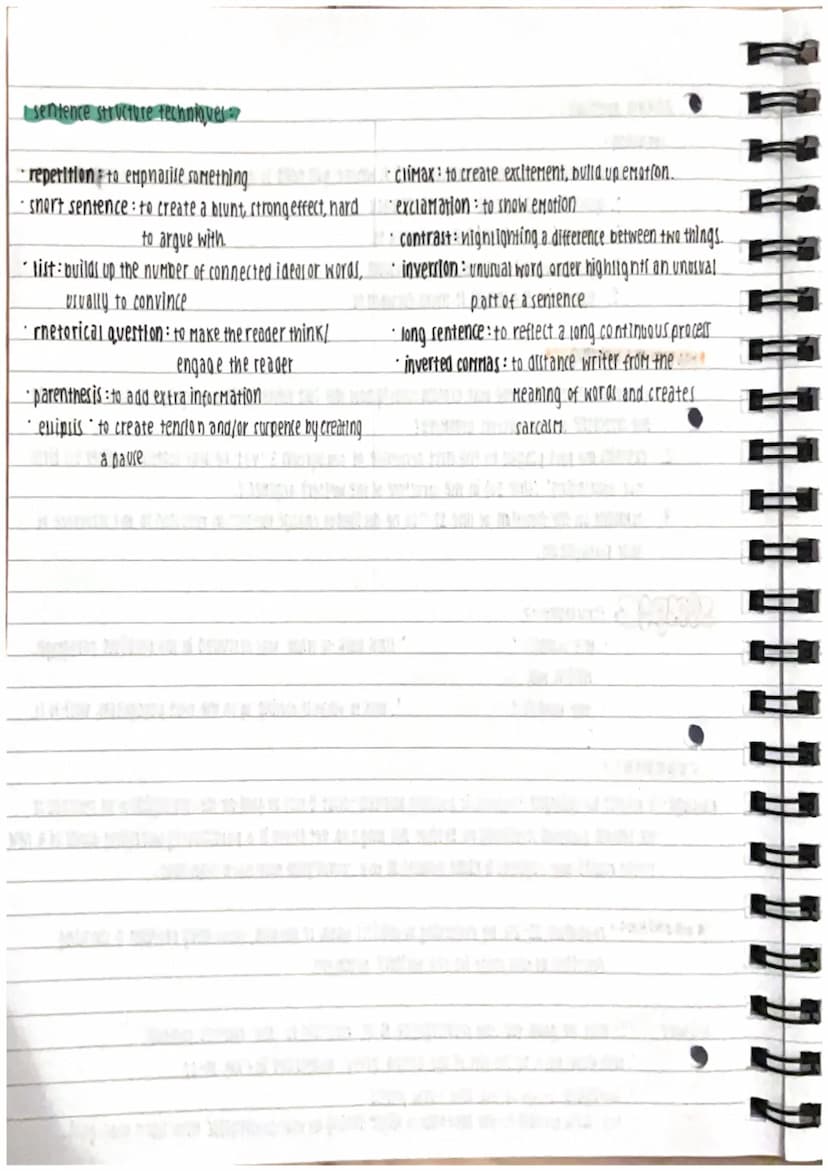 sentence structure techniques:
· repetition: to emphasise something
· short sentence: to create a blunt, strong effect, hard
to argue with
· list: builds up the number of connected ideas or words,
usually to convince
· rhetorical question: to make the reader think/
engage the reader
· parenthesis: to add extra information
· ellipsis: to create tension and/or suspence by creating
a pause
· climax: to create excitement, build up emotion.
· exclamation: to show emotion
· contrast: highlighting a difference between two things.
· inversion: unusual word order highlights an unusual
part of a sentence
· long sentence: to reflect a long continuous process
· inverted commas: to distance writer from the
meaning of words and creates
sarcasm.